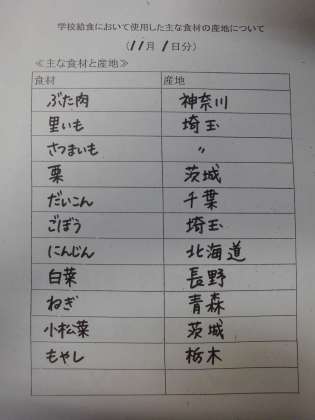 学校給食において使用した主な食材の産地について
(11月1日分)
≪主な食材と産地≫
食材 産地
ぶた肉 神奈川
里いも 埼玉
さつまいも 〃
栗 茨城
だいこん 千葉
ごぼう 埼玉
にんじん 北海道
白菜 長野
ねぎ 青森
小松菜 茨城
もやし 栃木